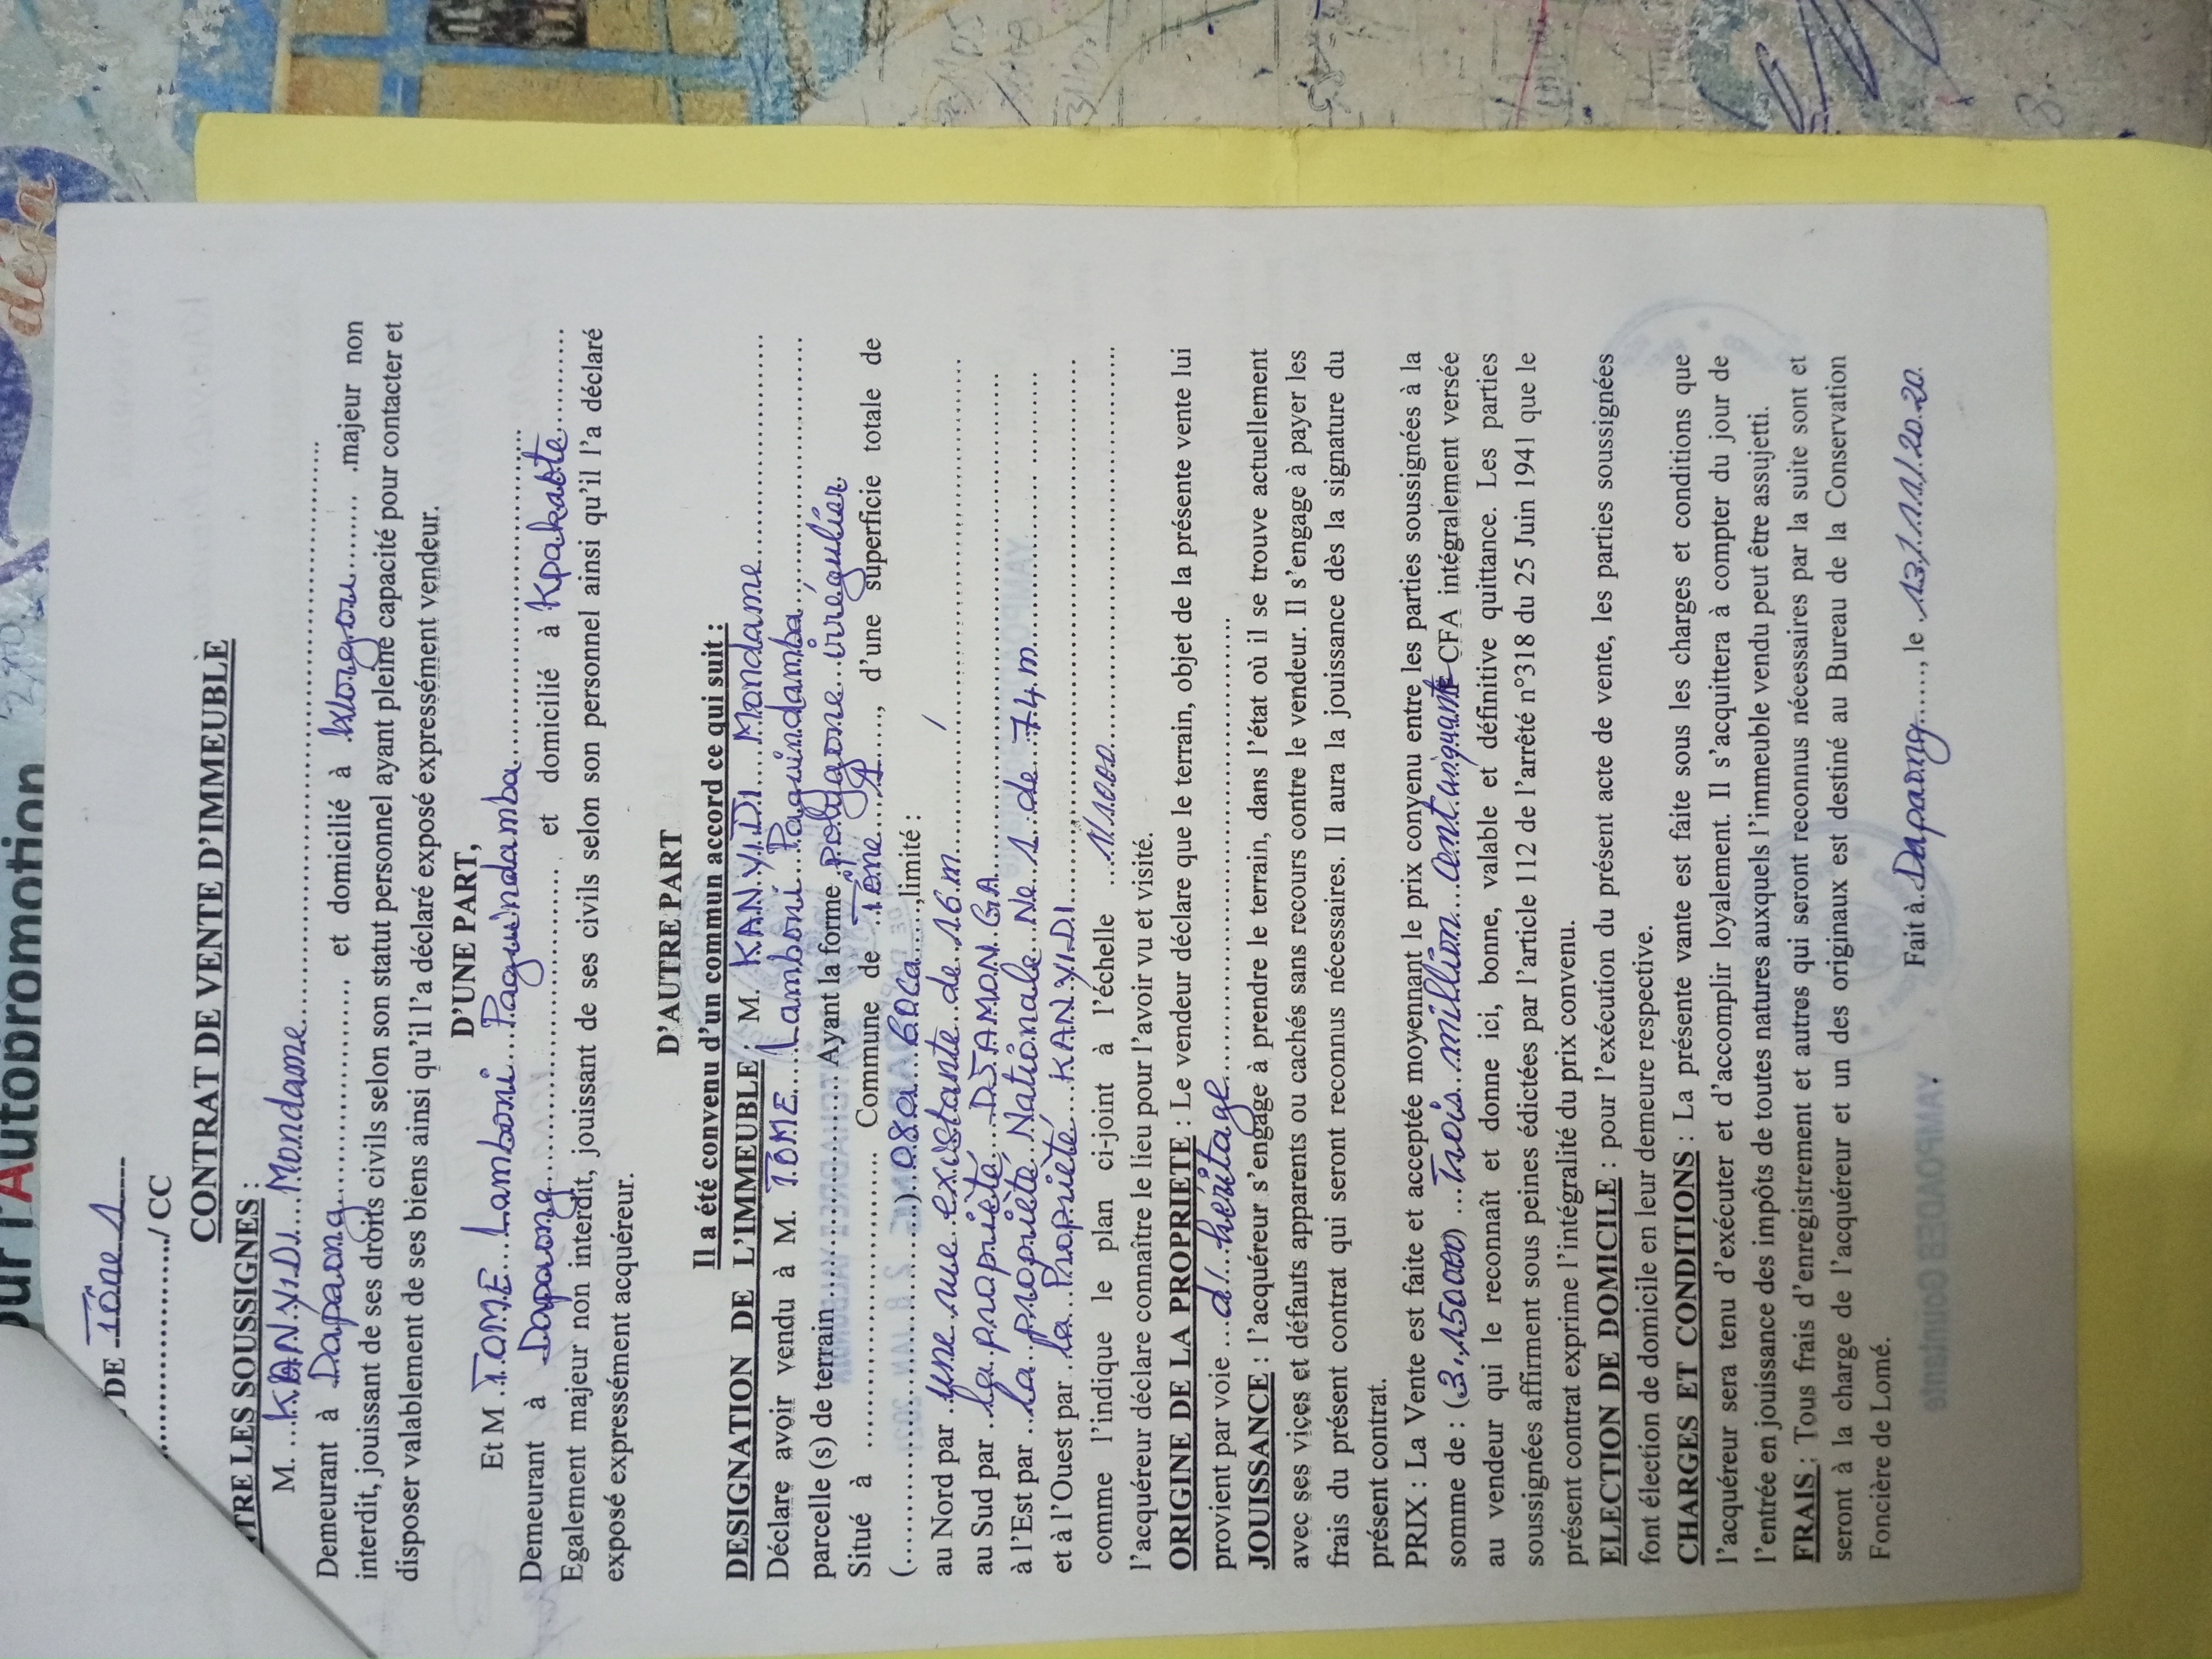 our l'Autopromotion
défa
DE Tône 1
/ CC
CONTRAT DE VENTE D'IMMEUBLE
NTRE LES SOUSSIGNES :
M. ...KANYIDI Mondame
Demeurant à Dapaong et domicilié à Worgou .majeur non
interdit, jouissant de ses droits civils selon son statut personnel ayant pleine capacité pour contacter et
disposer valablement de ses biens ainsi qu'il l'a déclaré exposé expressément vendeur.
D'UNE PART,
Et M TOME Lamboni Paguindamba
Demeurant à Dapaong et domicilié à Kpakabte
Egalement majeur non interdit, jouissant de ses civils selon son personnel ainsi qu'il l'a déclaré
exposé expressément acquéreur.
D'AUTRE PART
Il a été convenu d'un commun accord ce qui suit :
DESIGNATION DE L'IMMEUBLE : M. KANYIDI Mondame
Déclare avoir vendu à M. TOME Lamboni Paguindamba
parcelle (s) de terrain Ayant la forme polygone irrégulier
Situé à Commune de Tône 1, d'une superficie totale de
(..........) 08a 60ca, limité :
au Nord par une rue existante de 16 m
au Sud par la propriété DJAMONGA
à l'Est par la propriété Nationale No 1 de 74 m
et à l'Ouest par la Propriété KANYIDI
comme l'indique le plan ci-joint à l'échelle
l'acquéreur déclare connaître le lieu pour l'avoir vu et visité.
ORIGINE DE LA PROPRIETE : Le vendeur déclare que le terrain, objet de la présente vente lui
provient par voie d'héritage
JOUISSANCE : l'acquéreur s'engage à prendre le terrain, dans l'état où il se trouve actuellement
avec ses vices et défauts apparents ou cachés sans recours contre le vendeur. Il s'engage à payer les
frais du présent contrat qui seront reconnus nécessaires. Il aura la jouissance dès la signature du
présent contrat.
PRIX : La Vente est faite et acceptée moyennant le prix convenu entre les parties soussignées à la
somme de : (3.150000) Trois million cent cinquante CFA intégralement versée
au vendeur qui le reconnaît et donne ici, bonne, valable et définitive quittance. Les parties
soussignées affirment sous peines édictées par l'article 112 de l'arrêté n°318 du 25 Juin 1941 que le
présent contrat exprime l'intégralité du prix convenu.
ELECTION DE DOMICILE : pour l'exécution du présent acte de vente, les parties soussignées
font élection de domicile en leur demeure respective.
CHARGES ET CONDITIONS : La présente vante est faite sous les charges et conditions que
l'acquéreur sera tenu d'exécuter et d'accomplir loyalement. Il s'acquittera à compter du jour de
l'entrée en jouissance des impôts de toutes natures auxquels l'immeuble vendu peut être assujetti.
FRAIS : Tous frais d'enregistrement et autres qui seront reconnus nécessaires par la suite sont et
seront à la charge de l'acquéreur et un des originaux est destiné au Bureau de la Conservation
Foncière de Lomé.
Fait à Dapaong, le 13/11/2020